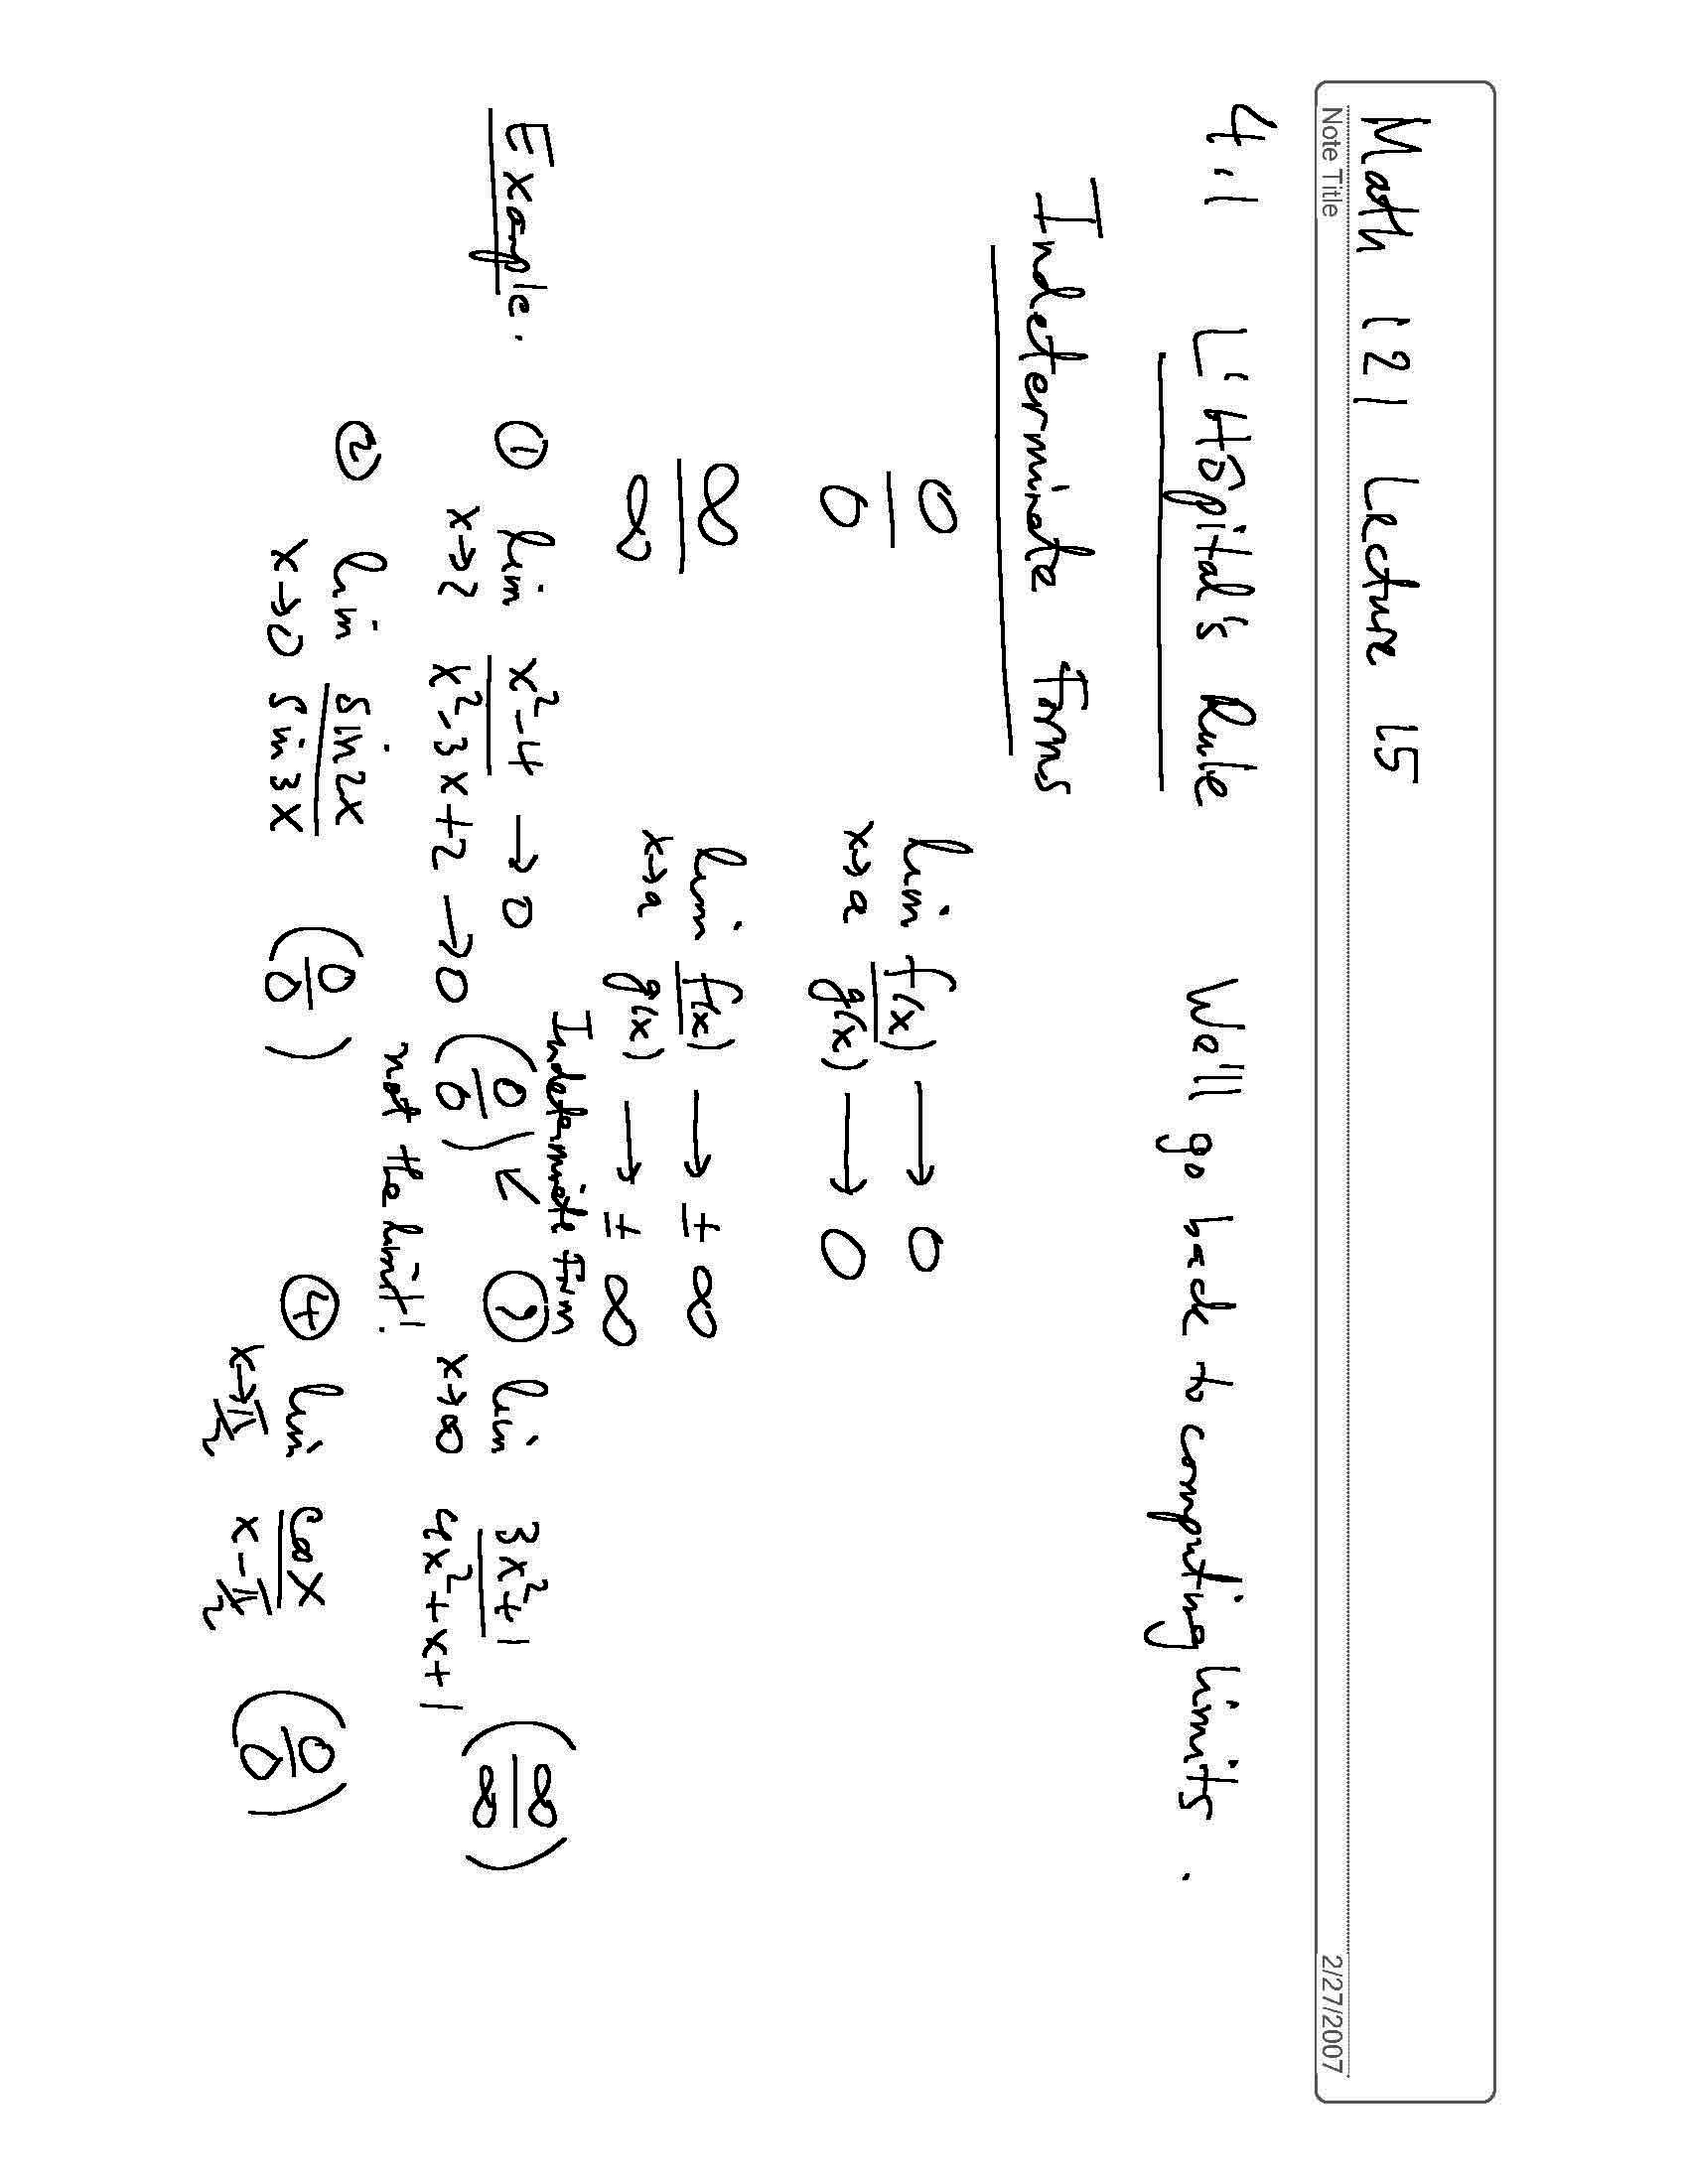 Math 121 Lecture 15
Note Title
2/27/2007
4.1 L'Hôpital's Rule We'll go back to computing limits.
Indeterminate Forms
0/0 lim x→a f(x)/g(x) → 0 → 0
∞/∞ lim x→a f(x)/g(x) → ±∞ → ±∞
Indeterminate Form
Example. ① lim x→2 x²-4/x²-3x+2 → 0 → 0 (0/0) ↙
not the limit!
③ lim x→∞ 3x²+1/4x²+x+1 (∞/∞)
② lim x→0 sin2x/sin3x (0/0)
④ lim x→π/2 cosx/x-π/2 (0/0)